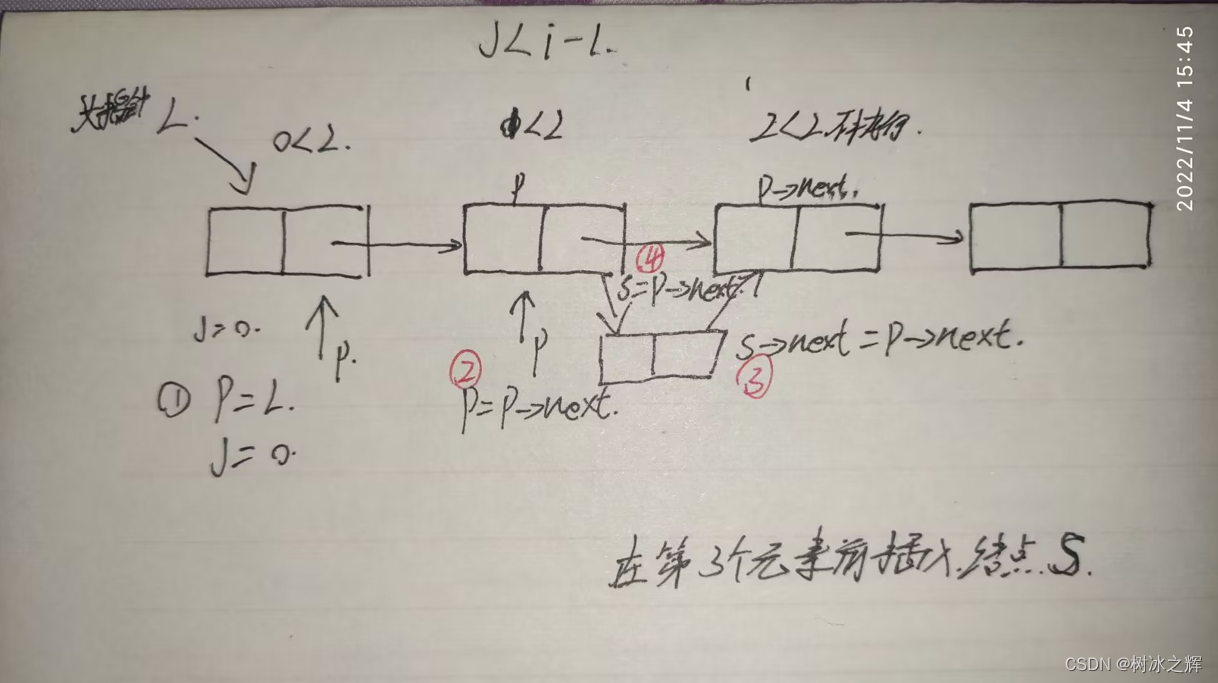 J<i-1.
2022/11/4 15:45
头指针 L.
0<2.
1<2
2<2.不执行.
P
P→next.
④
S=P→next.
J=0.
P.
P
② 
S→next=P→next.
③
① P=L.
P=P→next.
J=0.
在第3个元素前插入.结点.S.
CSDN @树冰之辉